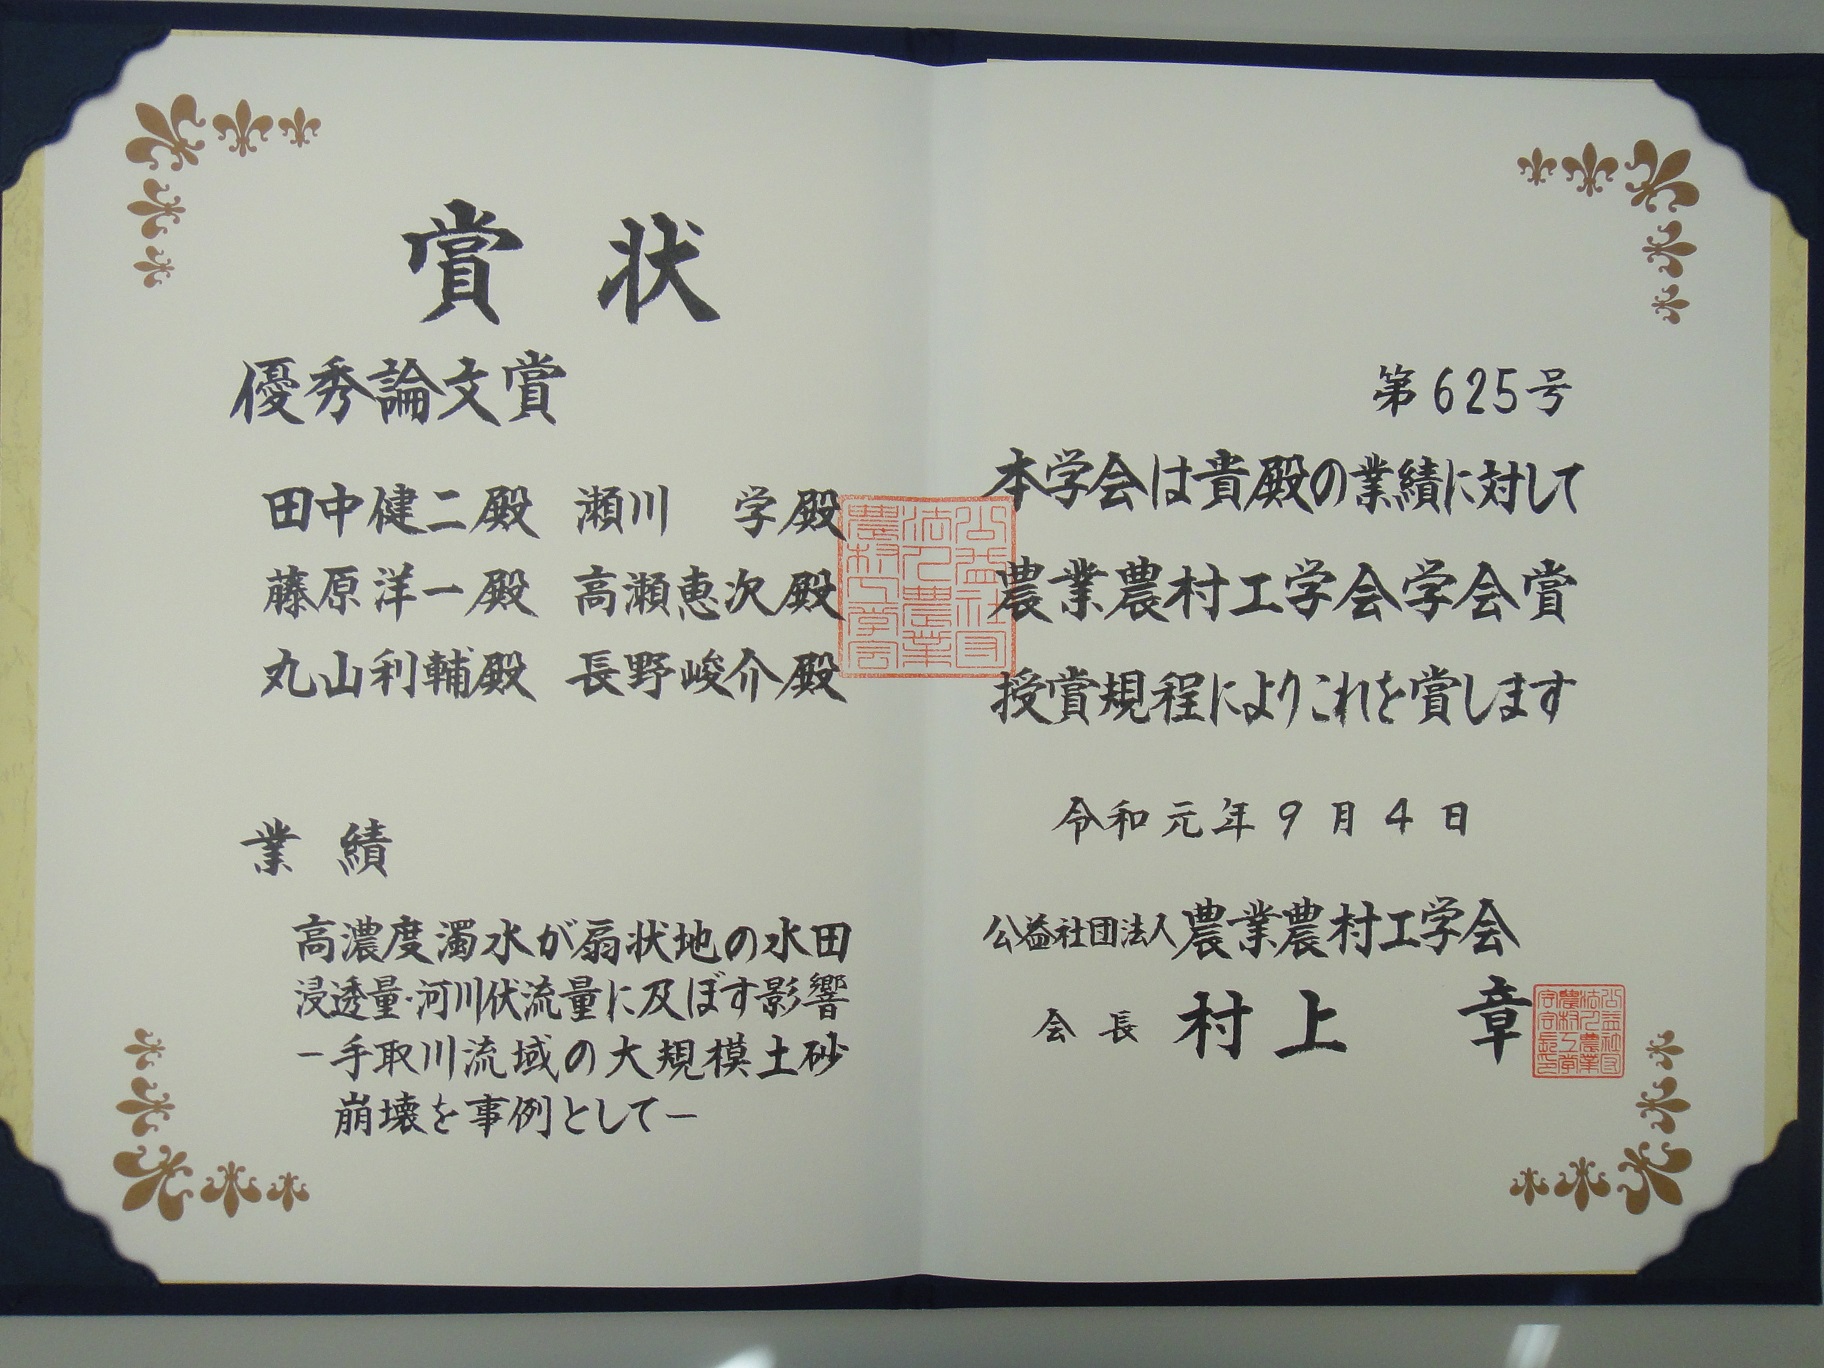 賞状
優秀論文賞
田中健二殿 瀬川 学殿
藤原洋一殿 高瀬恵次殿
丸山利輔殿 長野峻介殿
業績
高濃度濁水が扇状地の水田
浸透量・河川伏流量に及ぼす影響
－手取川流域の大規模土砂
崩壊を事例として－
第625号
本学会は貴殿の業績に対して
農業農村工学会学会賞
授賞規程によりこれを賞します
令和元年9月4日
公益社団法人農業農村工学会
会長 村上 章
公益社団
法人農業
農村工学会
公益社団
法人農業
農村工学
会会長印